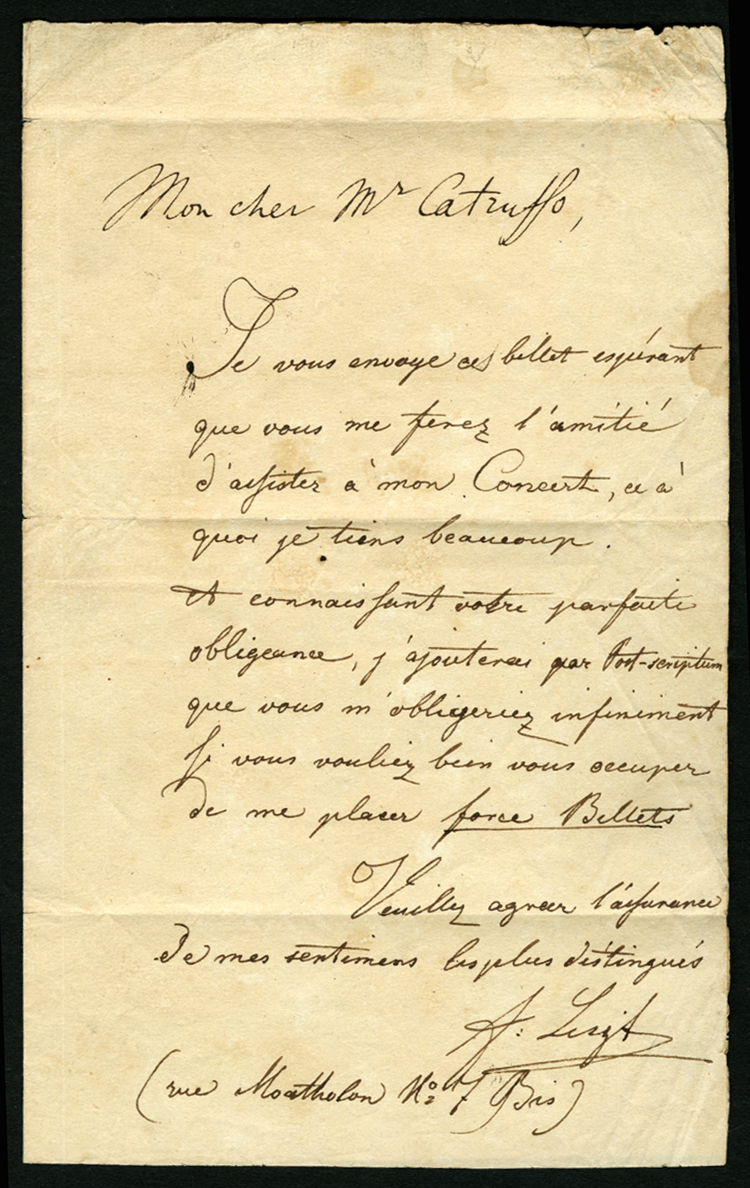 Mon cher Mr Catruffo,
Je vous envoye ce billet espérant
que vous me ferez l'amitié
d'assister à mon Concert, ce à
quoi je tiens beaucoup.
et connaissant votre parfaite
obligeance, j'ajouterai par Post-scriptum
que vous m'obligeriez infiniment
si vous vouliez bien vous occuper
de me placer force Billets
Veuillez agréer l'assurance
de mes sentimens les plus distingués
f: Liszt
(rue Montholon No 7 Bis)